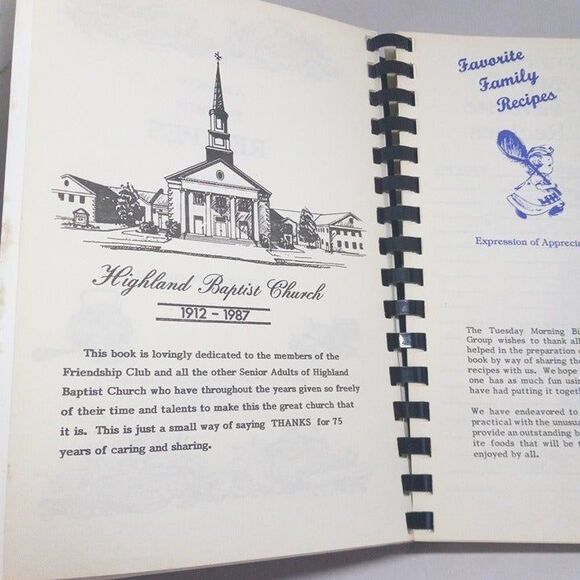 Highland Baptist Church
1912 - 1987
This book is lovingly dedicated to the members of the
Friendship Club and all the other Senior Adults of Highland
Baptist Church who have throughout the years given so freely
of their time and talents to make this the great church that
it is. This is just a small way of saying THANKS for 75
years of caring and sharing.
Favorite
Family
Recipes
Expression of
The Tuesday Morning
Group wishes to thank all
helped in the preparation
book by way of sharing
recipes with us. We hope
one has as much fun using
have had putting it
We have endeavored to
practical with the
provide an outstanding
foods that will be
enjoyed by all.